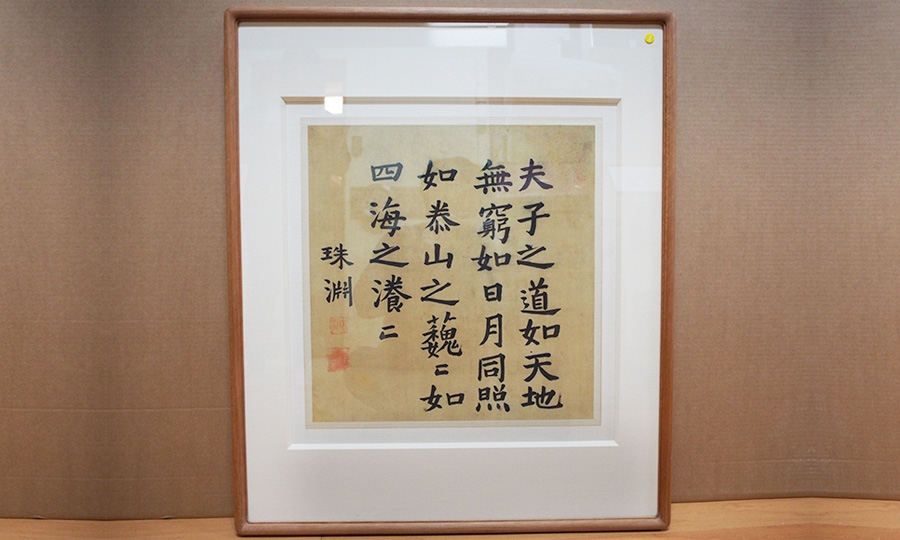 夫子之道如天地
無窮如日月同照
如泰山之巍〻如
四海之瀁〻
珠淵